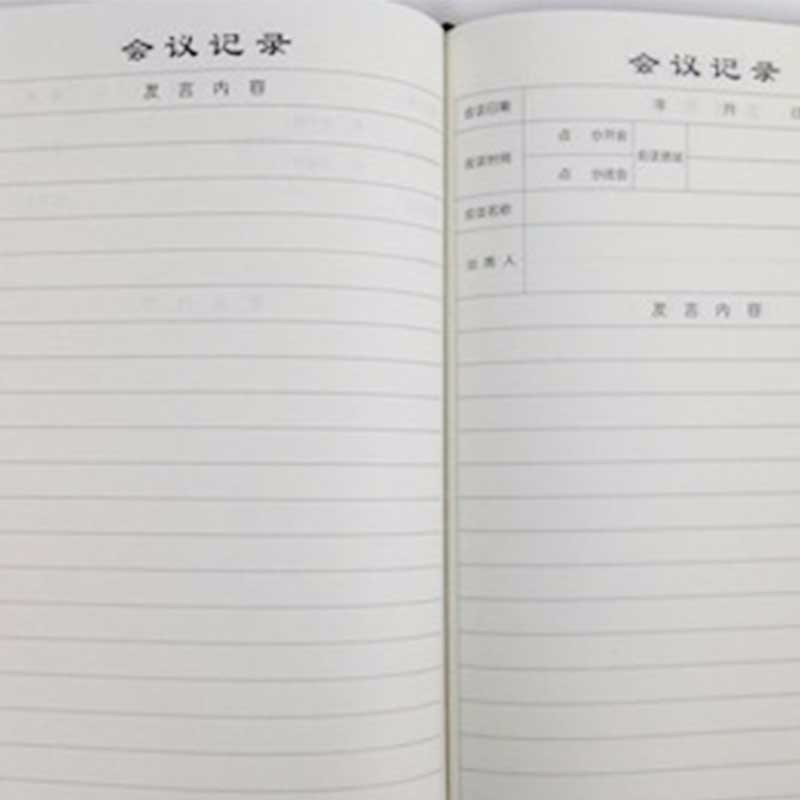 会议记录
发言内容
会议记录
会议日期 年 月 日
会议时间 点 分开会 会议地址
点 分结会
会议名称
出席人
发言内容